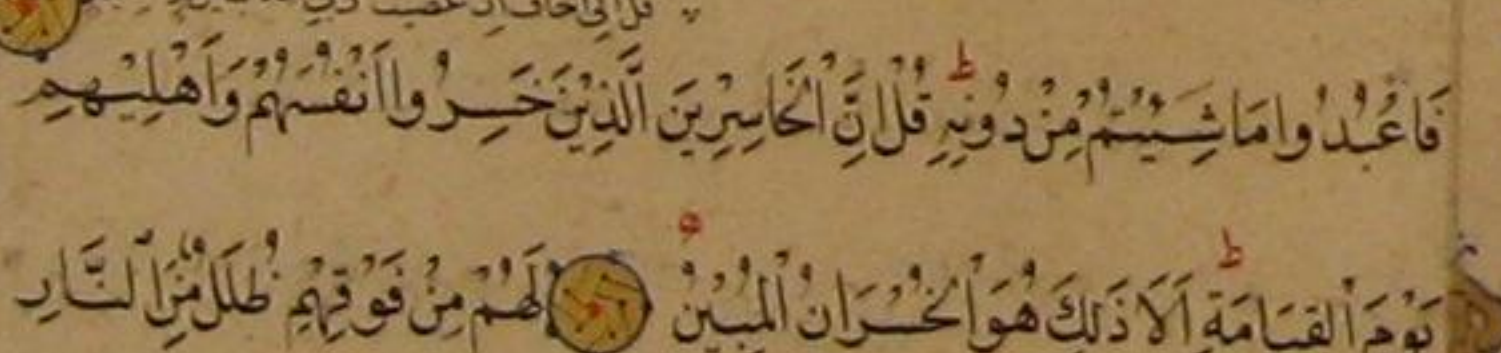 قل انى اخاف ان عصيت ربى
فَاعْبُدُوا مَا شِئْتُمْ مِنْ دُونِهِ ط قُلْ اِنَّ الْخَاسِرِينَ الَّذِيْنَ خَسِرُوا اَنْفُسَهُمْ وَاَهْلِيْهِمْ
يَوْمَ الْقِيَامَةِ ط اَلَا ذَلِكَ هُوَ الْخُسْرَانُ الْمُبِيْنُ لَهُمْ مِنْ فَوْقِهِمْ ظُلَلٌ مِّنَ النَّارِ